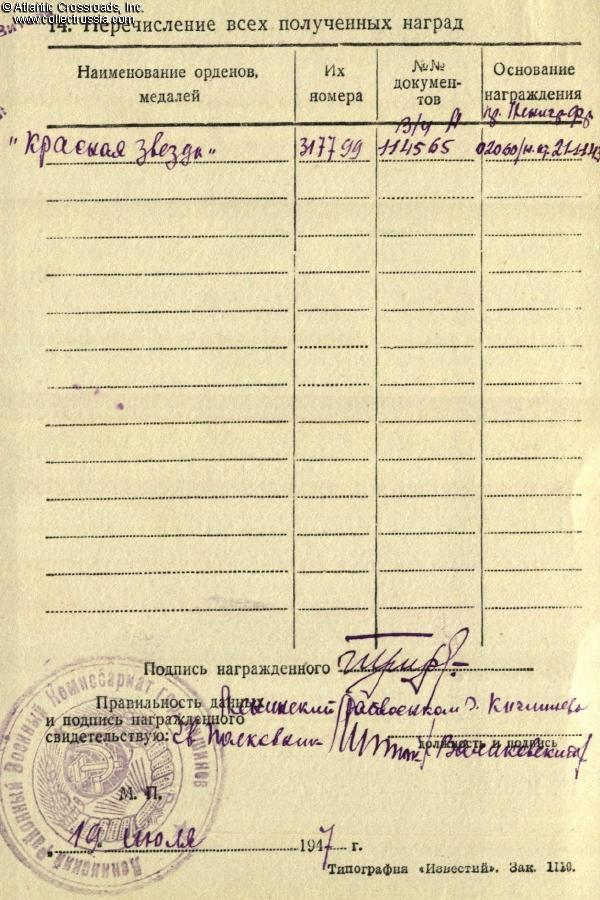 © Atlantic Crossroads, Inc.
© www.collectrussia.com
14. Перечисление всех полученных наград
Наименование орденов, медалей
Их номера
№№ документов
Основание награждения
"Красная звезда" 317799 114565 02060/н
Подпись награжденного
Правильность данных
и подпись награжденного
свидетельствую:
Райвоенком г. Кишинева
Полковник
должность и подпись
Ленинский Районный Военный Комиссариат
М. П.
19 июля 1947 г.
Типография «Известий». Зак. 1110.